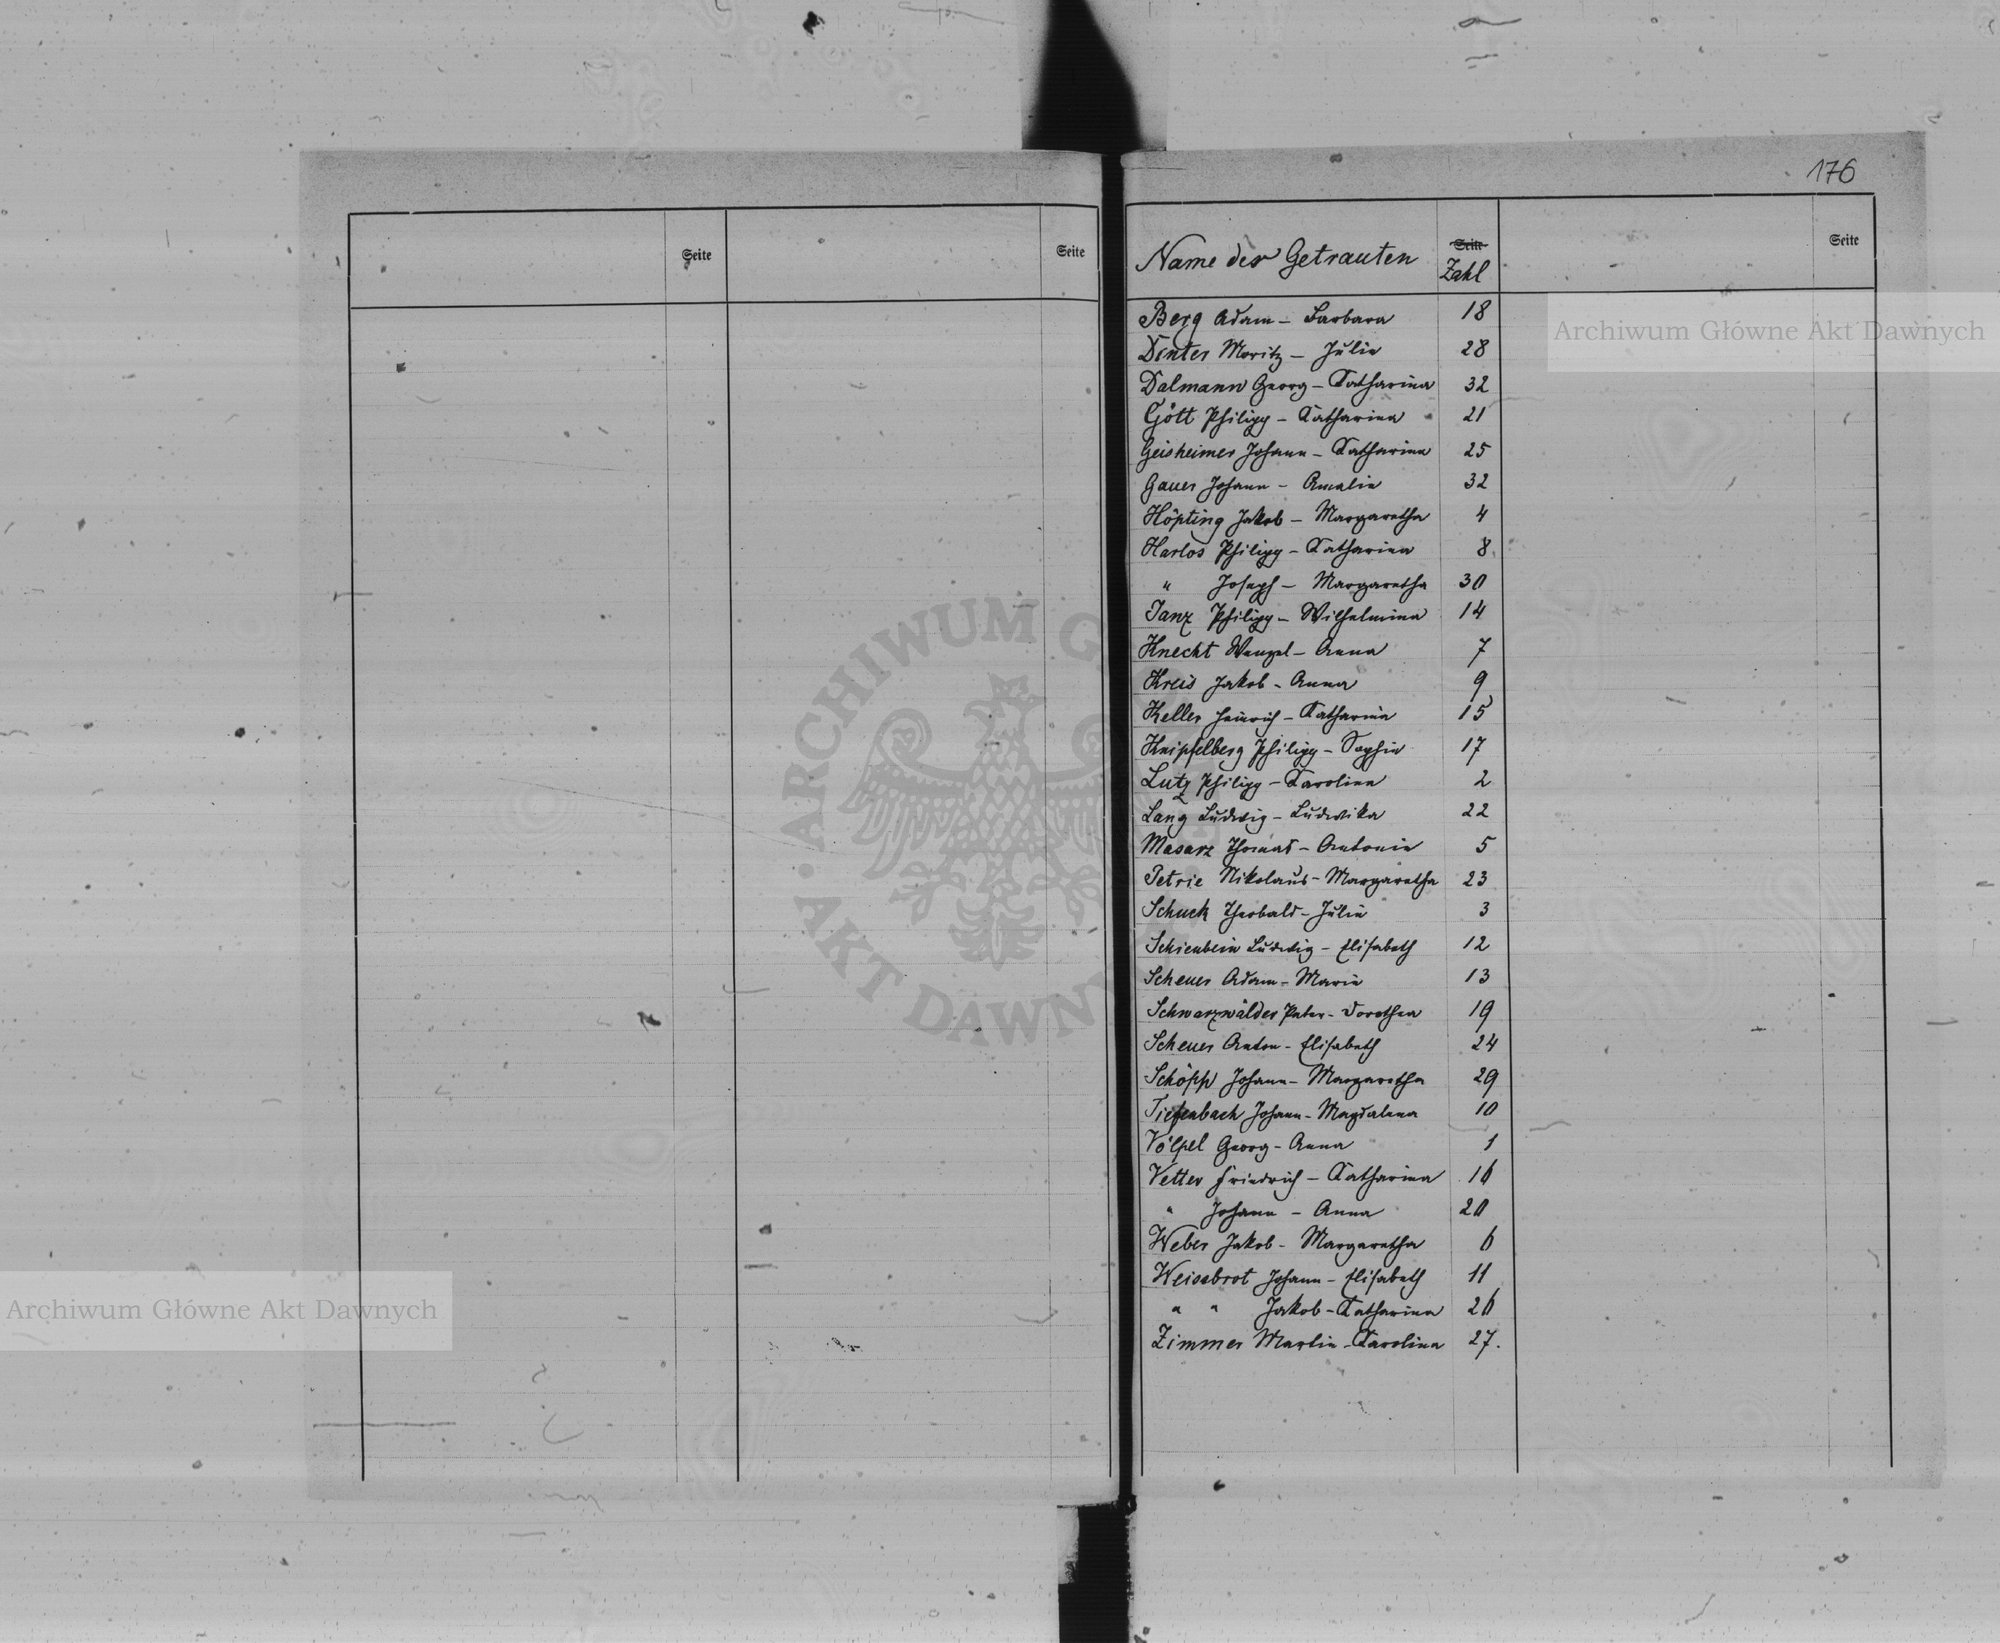 176
Seite
Seite
Name der Getrauten
Seite
Zahl
Seite
Berg Adam – Barbara 18
Dinter Moritz – Julie 28
Dalmann Georg – Katharina 32
Gött Philipp – Katharina 21
Geisheimer Johann – Katharina 25
Gauer Johann – Amalie 32
Höpting Jakob – Margaretha 4
Harlos Philipp – Katharina 8
" Joseph – Margaretha 30
Janz Philipp – Wilhelmina 14
Knecht Wenzel – Anna 7
Kreis Jakob – Anna 9
Keller Heinrich – Katharina 15
Knipfelberg Philipp – Sophie 17
Lutz Philipp – Karolina 2
Lang Ludwig – Ludwika 22
Masarz Thomas – Antonie 5
Petrie Nikolaus – Margaretha 23
Schuck Theobald – Julie 3
Schienbein Ludwig – Elisabeth 12
Scheuer Adam – Marie 13
Schwarzwälder Peter – Dorothea 19
Scheuer Anton – Elisabeth 24
Schöpp Johann – Margaretha 29
Tiefenbach Johann – Magdalena 10
Völpel Georg – Anna 1
Vetter Friedrich – Katharina 16
" Johann – Anna 20
Weber Jakob – Margaretha 6
Weissbrot Johann – Elisabeth 11
" " Jakob – Katharina 26
Zimmer Martin – Karolina 27.
Archiwum Główne Akt Dawnych
Archiwum Główne Akt Dawnych
ARCHIWUM G
AKT DAWN